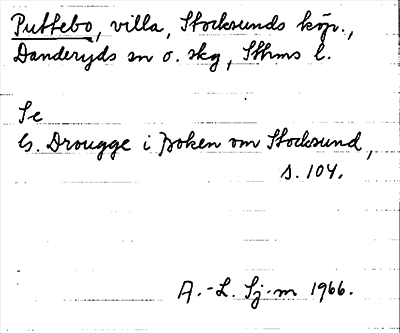 Puttebo, villa, Stocksunds köp.,
Danderyds sn o. skg, Sthms l.
Se
G. Drougge i Boken om Stocksund,
s. 104.
A.-L. Sj-m 1966.